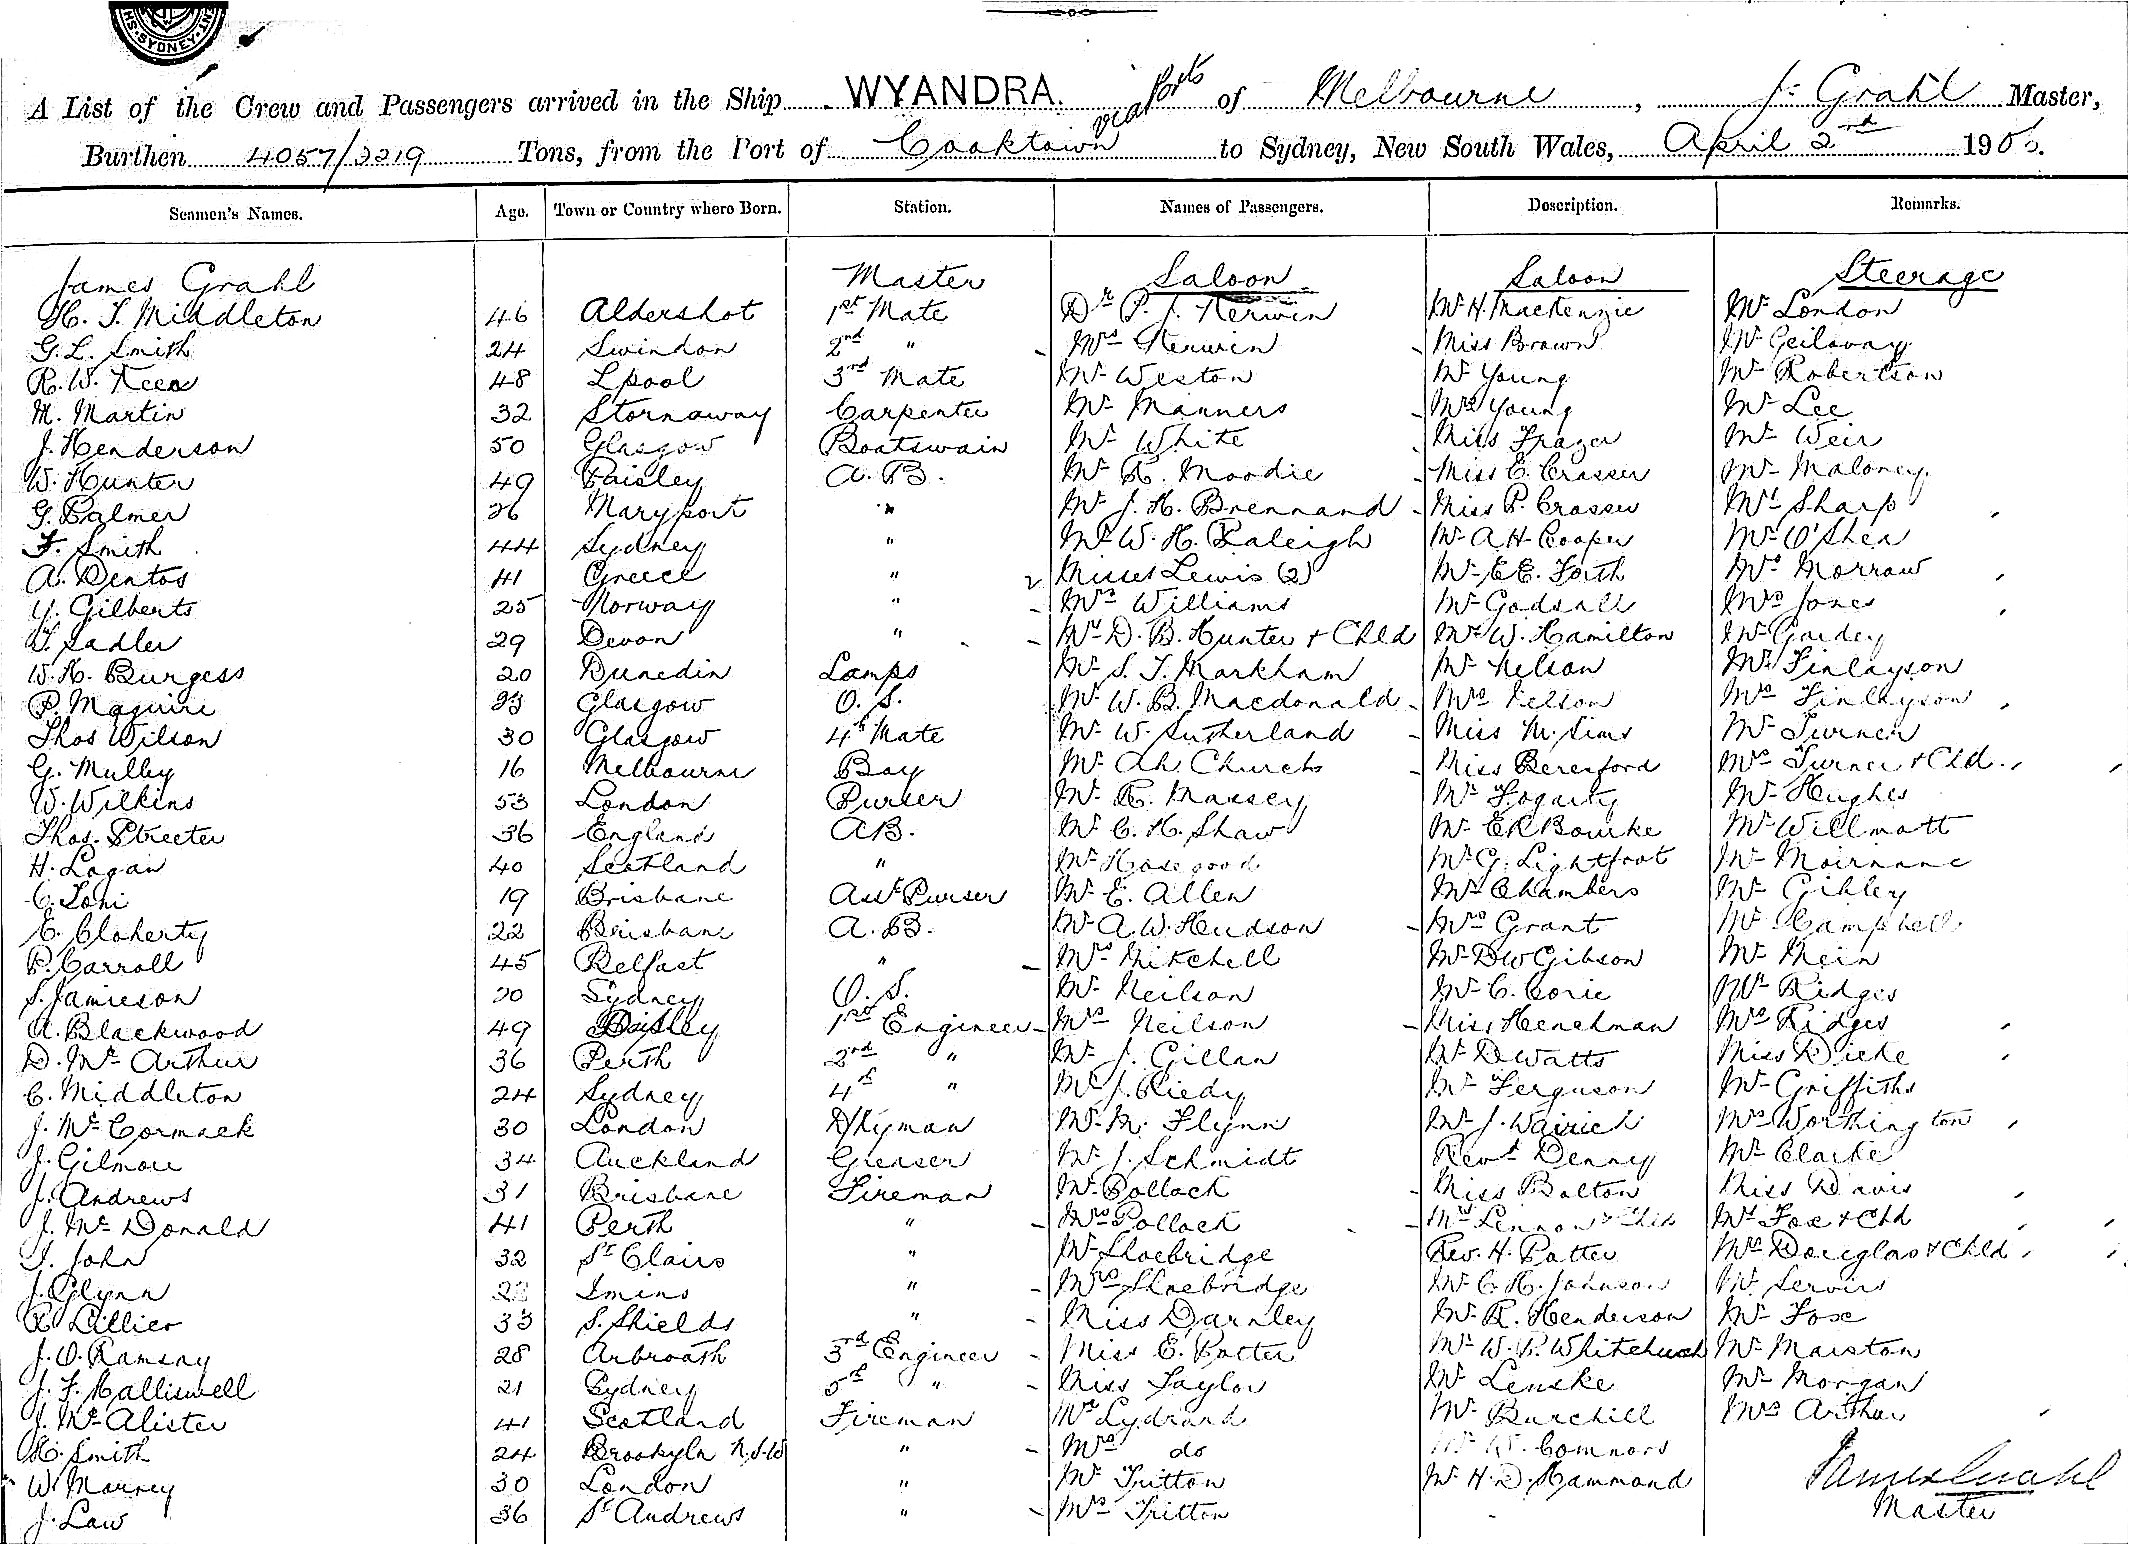 SYDNEY
A List of the Crew and Passengers arrived in the Ship WYANDRA. via Ports of Melbourne, J. Grahl Master,
Burthen 4057/3219 Tons, from the Port of Cooktown to Sydney, New South Wales, April 2nd 190
Seamen's Names. Age. Town or Country where Born. Station. Names of Passengers. Description. Remarks.
James Grahl Master Saloon Saloon Steerage
H. T. Middleton 46 Aldershot 1st Mate Dr P. J. Kerwin Mr H. MacKenzie Mr London
G. L. Smith 24 Swindon 2nd " Mrs Kerwin Miss Brown Mr
R. W. Keen 48 Lpool 3rd Mate Mr Weston Mr Young Mr Robertson
M. Martin 32 Stornaway Carpenter Mr Manners Mrs Young Mr Lee
J. Henderson 50 Glasgow Boatswain Mr White Miss Frazer Mr Weir
W. Hunter 49 Paisley A. B. Mr R. Moodie Miss E. Crasser Mr Maloney
G. Palmer 26 Maryport " Mr J. H. Brennand Miss P. Crasser Mrs Sharp
F. Smith 44 Sydney " Mr W. H. Raleigh Mr A H Cooper Mr O'Shea
A. Dentos 41 Greece " 2 Misses Lewis (2) Mr E E. Forth Mrs Morrow
Y. Gilberts 25 Norway " Mrs Williams Mr Godsall Mrs Jones
T. Sadler 29 Devon " Mr D. B. Hunter + Chld Mr W. Hamilton Mr Gordey
W. H. Burgess 20 Dunedin Lamps Mr S. T. Markham Mr Nelson Mr Finlayson
P. Maguire 23 Glasgow O. S. Mr W. B. Macdonald Mrs Nelson Mrs Finlayson
Thos Wilson 30 Glasgow 4th Mate Mr W. Sutherland Miss M. Sims Mr Turner
G. Mulby 16 Melbourne Boy Mr Ah Church Miss Beresford Mrs Turner + Chd
W. Wilkins 53 London Purser Mr R. Massey Mr Fogarty Mr Hughes
Thos. Streeter 36 England AB. Mr C. H. Shaw Mr E R Bourke Mr Willmott
H. Logan 40 Scotland " Mr Hosegood Mr G. Lightfoot Mr Moirnane
C. Toni 19 Brisbane Asst Purser Mr E. Allen Mr Chambers Mr Gibley
E. Cloherty 22 Brisbane A. B. Mr A. W. Hudson Mrs Grant Mr Campbell
P. Carroll 45 Belfast " Mrs Mitchell Mr D W Gibson Mr Mein
S. Jamieson 20 Sydney O. S. Mr Neilson Mr C. Corie Mr Ridges
A. Blackwood 49 Paisley 1st Engineer Mrs Neilson Miss Henchman Mrs Ridges
D. Mc Arthur 36 Perth 2nd " Mr J. Gillan Mr D Watts Miss Dicke
C. Middleton 24 Sydney 4th " Mr J. Riedy Mr Ferguson Mr Griffiths
J. Mc Cormack 30 London Dkyman Mr M. Flynn Mr J. Wairich Mrs Worthington
J. Gilmore 34 Auckland Greaser Mr J. Schmidt Revd Denney Mr Clarke
J. Andrews 31 Brisbane Fireman Mr Pollock Miss Bolton Miss Davis
J. Mc Donald 41 Perth " Mrs Pollock Mrs Lennon + Chld Mrs Fox + Chd
T. John 32 St Clairs " Mr Shoebridge Rev. H. Potter Mrs Douglas + Chld
J. Glynn " Mrs Shoebridge Mr C. H. Johnson Mr Servis
R. Lillier 33 S. Shields " Miss Darnley Mr R. Henderson Mr Fox
J. O. Ramsay 28 Arbroath 3rd Engineer Miss E. Potter Mr W. P. Whitchurch Mr Marston
J. F. Halliswell 21 Sydney 5th " Miss Taylor Mr Lenske Mr Morgan
J. Mc Alister 41 Scotland Fireman Mr Lydrand Mr Burchill Mrs Arthur
H. Smith 24 Brookyln N.S.W " Mrs do Mr W. Connors
W. Marney 30 London " Mr Tritton Mr H. D. Hammond James Grahl
J. Law 36 St Andrews " Mrs Tritton Master